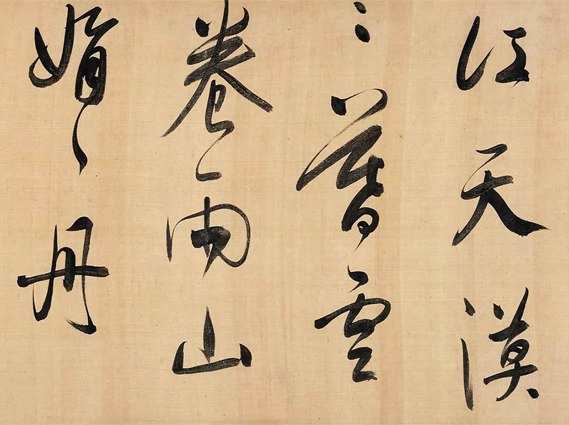 江天漠
〻暮雲
卷雨山
娟〻丹